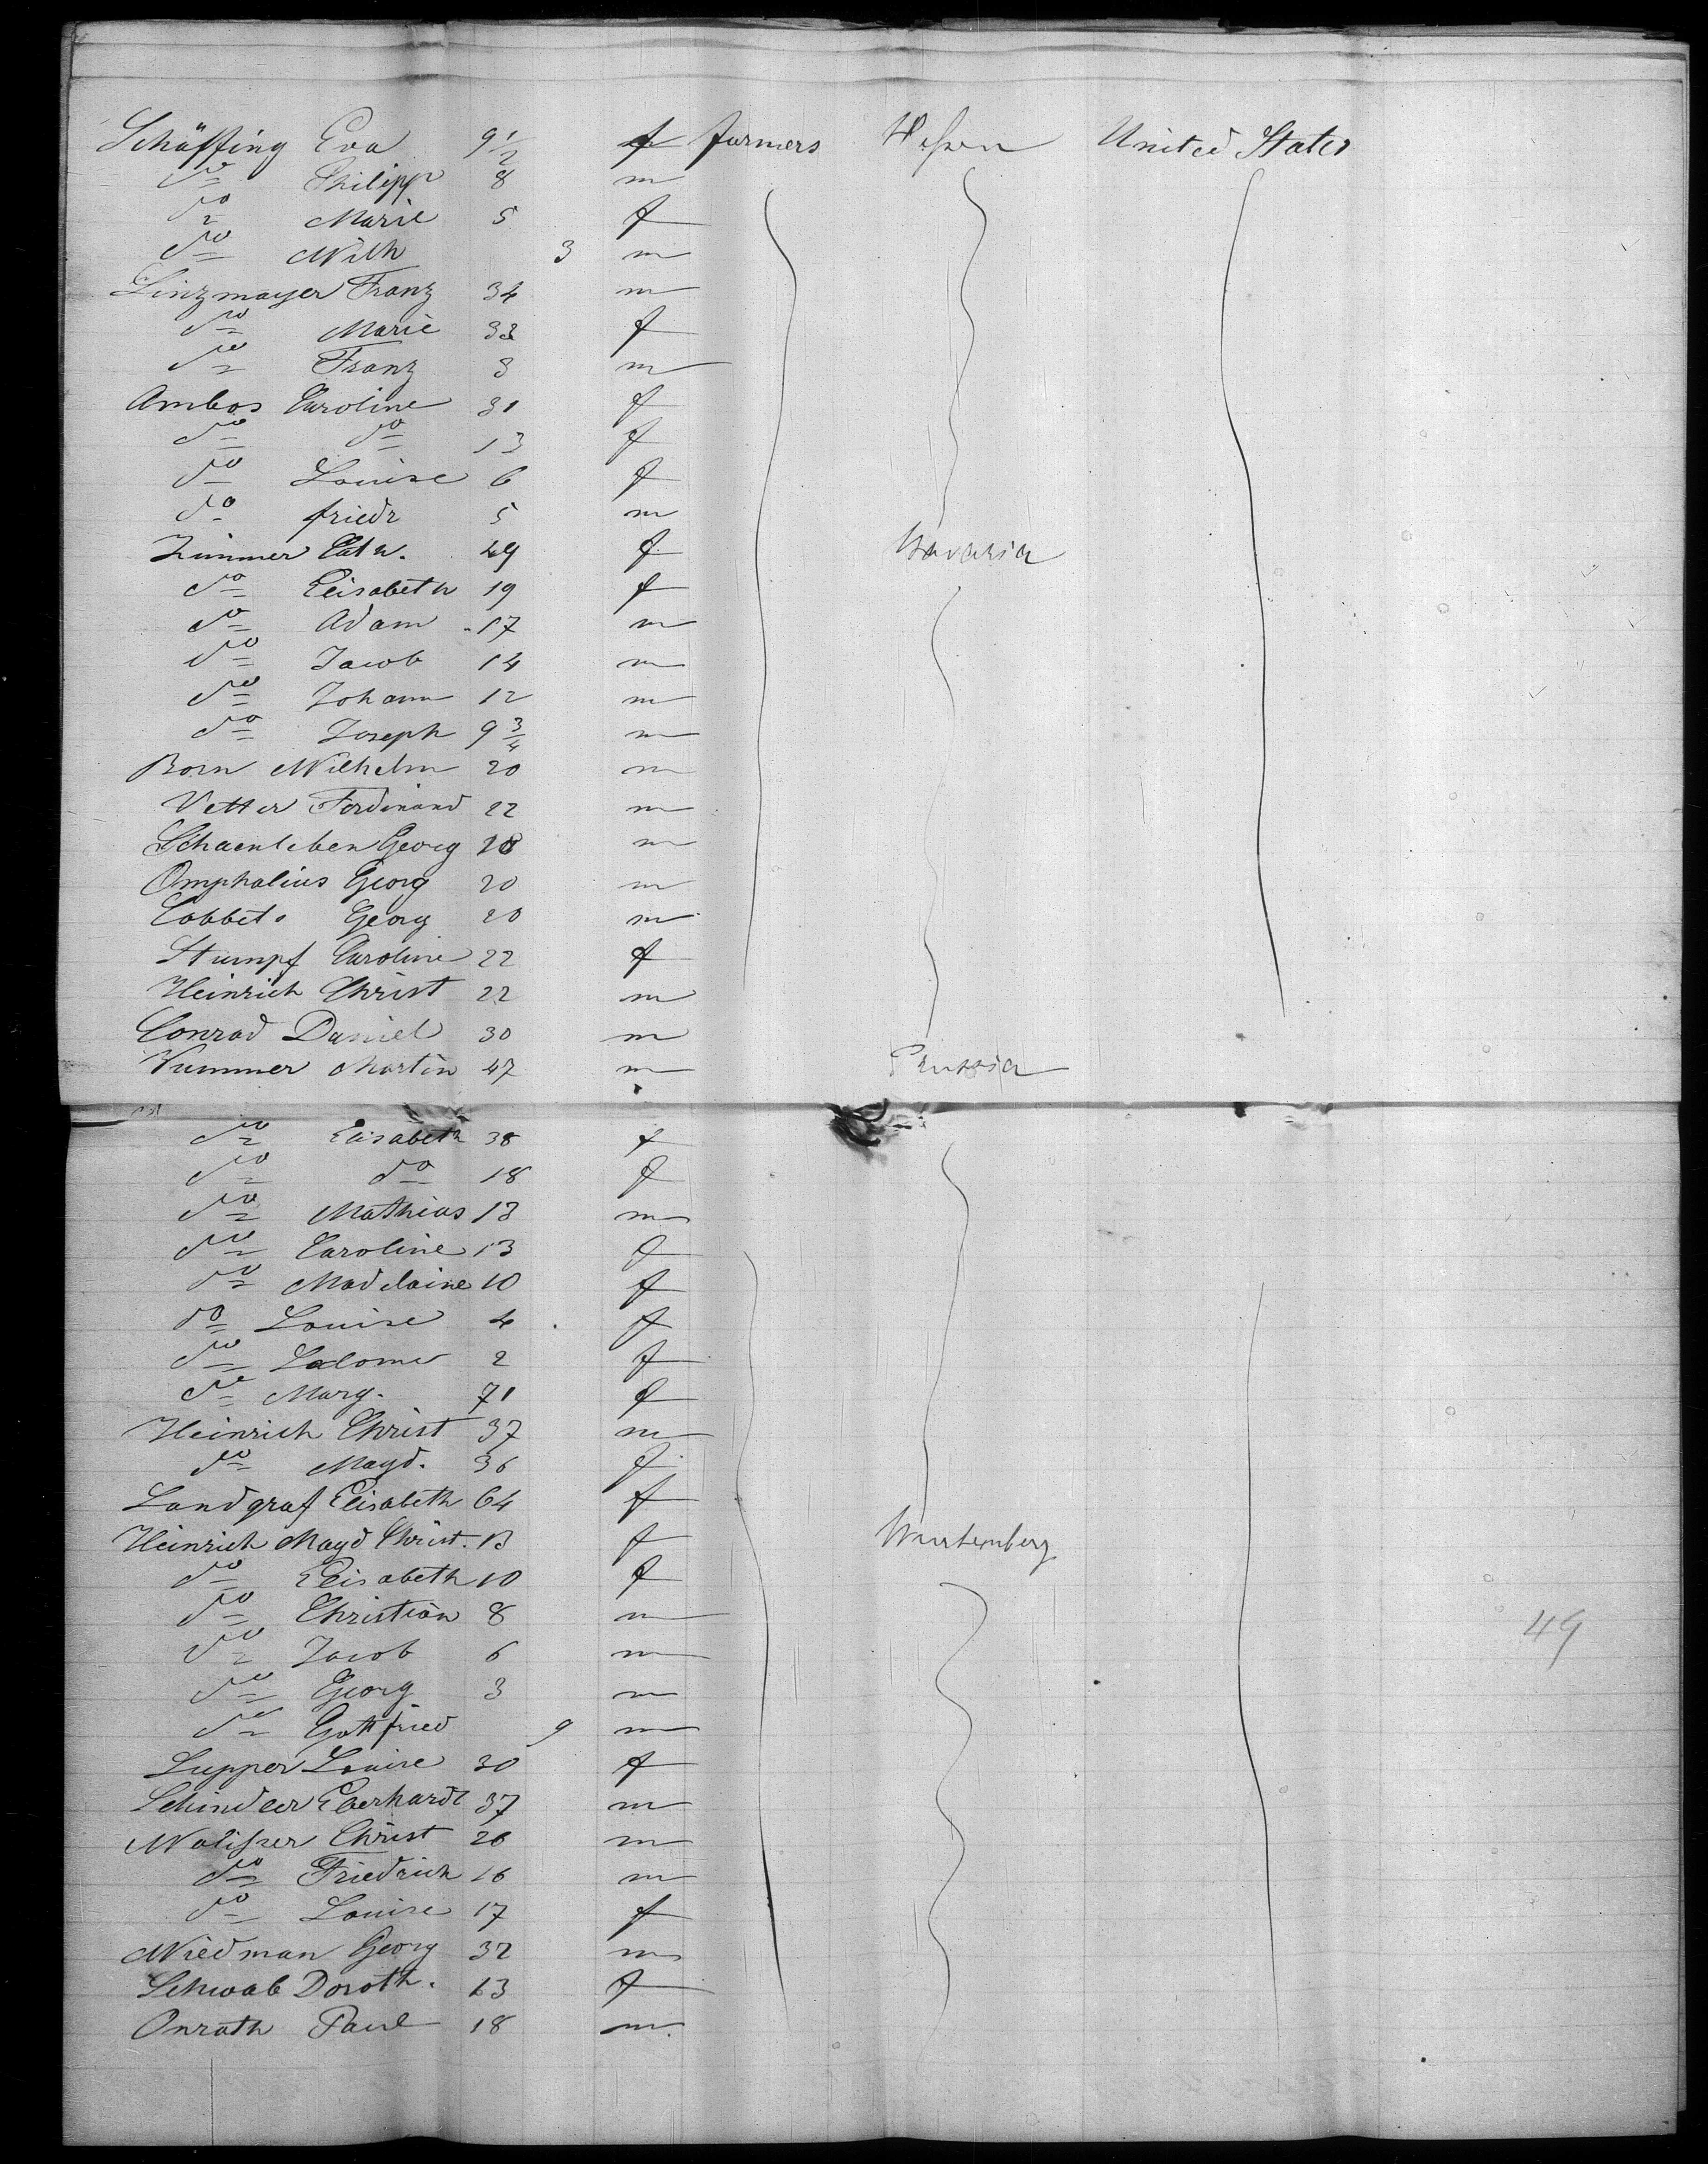 Schäffing Eva 9 1/2 f farmers Hessen United States
do Philipp 8 m
do Marie 5 f
do Wilh 3 m
Linzmayer Franz 34 m
do Marie 33 f
do Franz 3 m
Ambos Caroline 31 f
do do 13 f
do Louise 6 f
do friedr 5 m
Zimmer Cath. 49 f Bavaria
do Elisabeth 19 f
do Adam 17 m
do Jacob 14 m
do Johann 12 m
do Joseph 9 3/4 m
Born Wilhelm 20 m
Vetter Ferdinand 22 m
Schaenleben Georg 28 m
Omphalius Georg 20 m
Cobbet Georg 20 m
Stumpf Caroline 22 f
Heinrich Christ 22 m
Conrad Daniel 30 m
Wummer Martin 47 m Prussia
do Elisabeth 38 f
do do 18 f
do Mathias 13 m
do Caroline 13 f
do Madelaine 10 f
do Louise 4 f
do Salome 2 f
do Marg. 71 f
Heinrich Christ 37 m
do Magd. 36 f
Landgraf Elisabeth 64 f
Heinrich Magd Christ. 13 f Wurtemberg
do Elisabeth 10 f
do Christian 8 m
do Jacob 6 m 49
do Georg 3 m
do Gottfried 9 m
Supper Louise 30 f
Schindler Eberhardt 37 m
Christ 26 m
do Friedrich 16 m
do Louise 17 f
Wiedman Georg 32 m
Schwab Doroth. 23 f
Onrath Paul 18 m